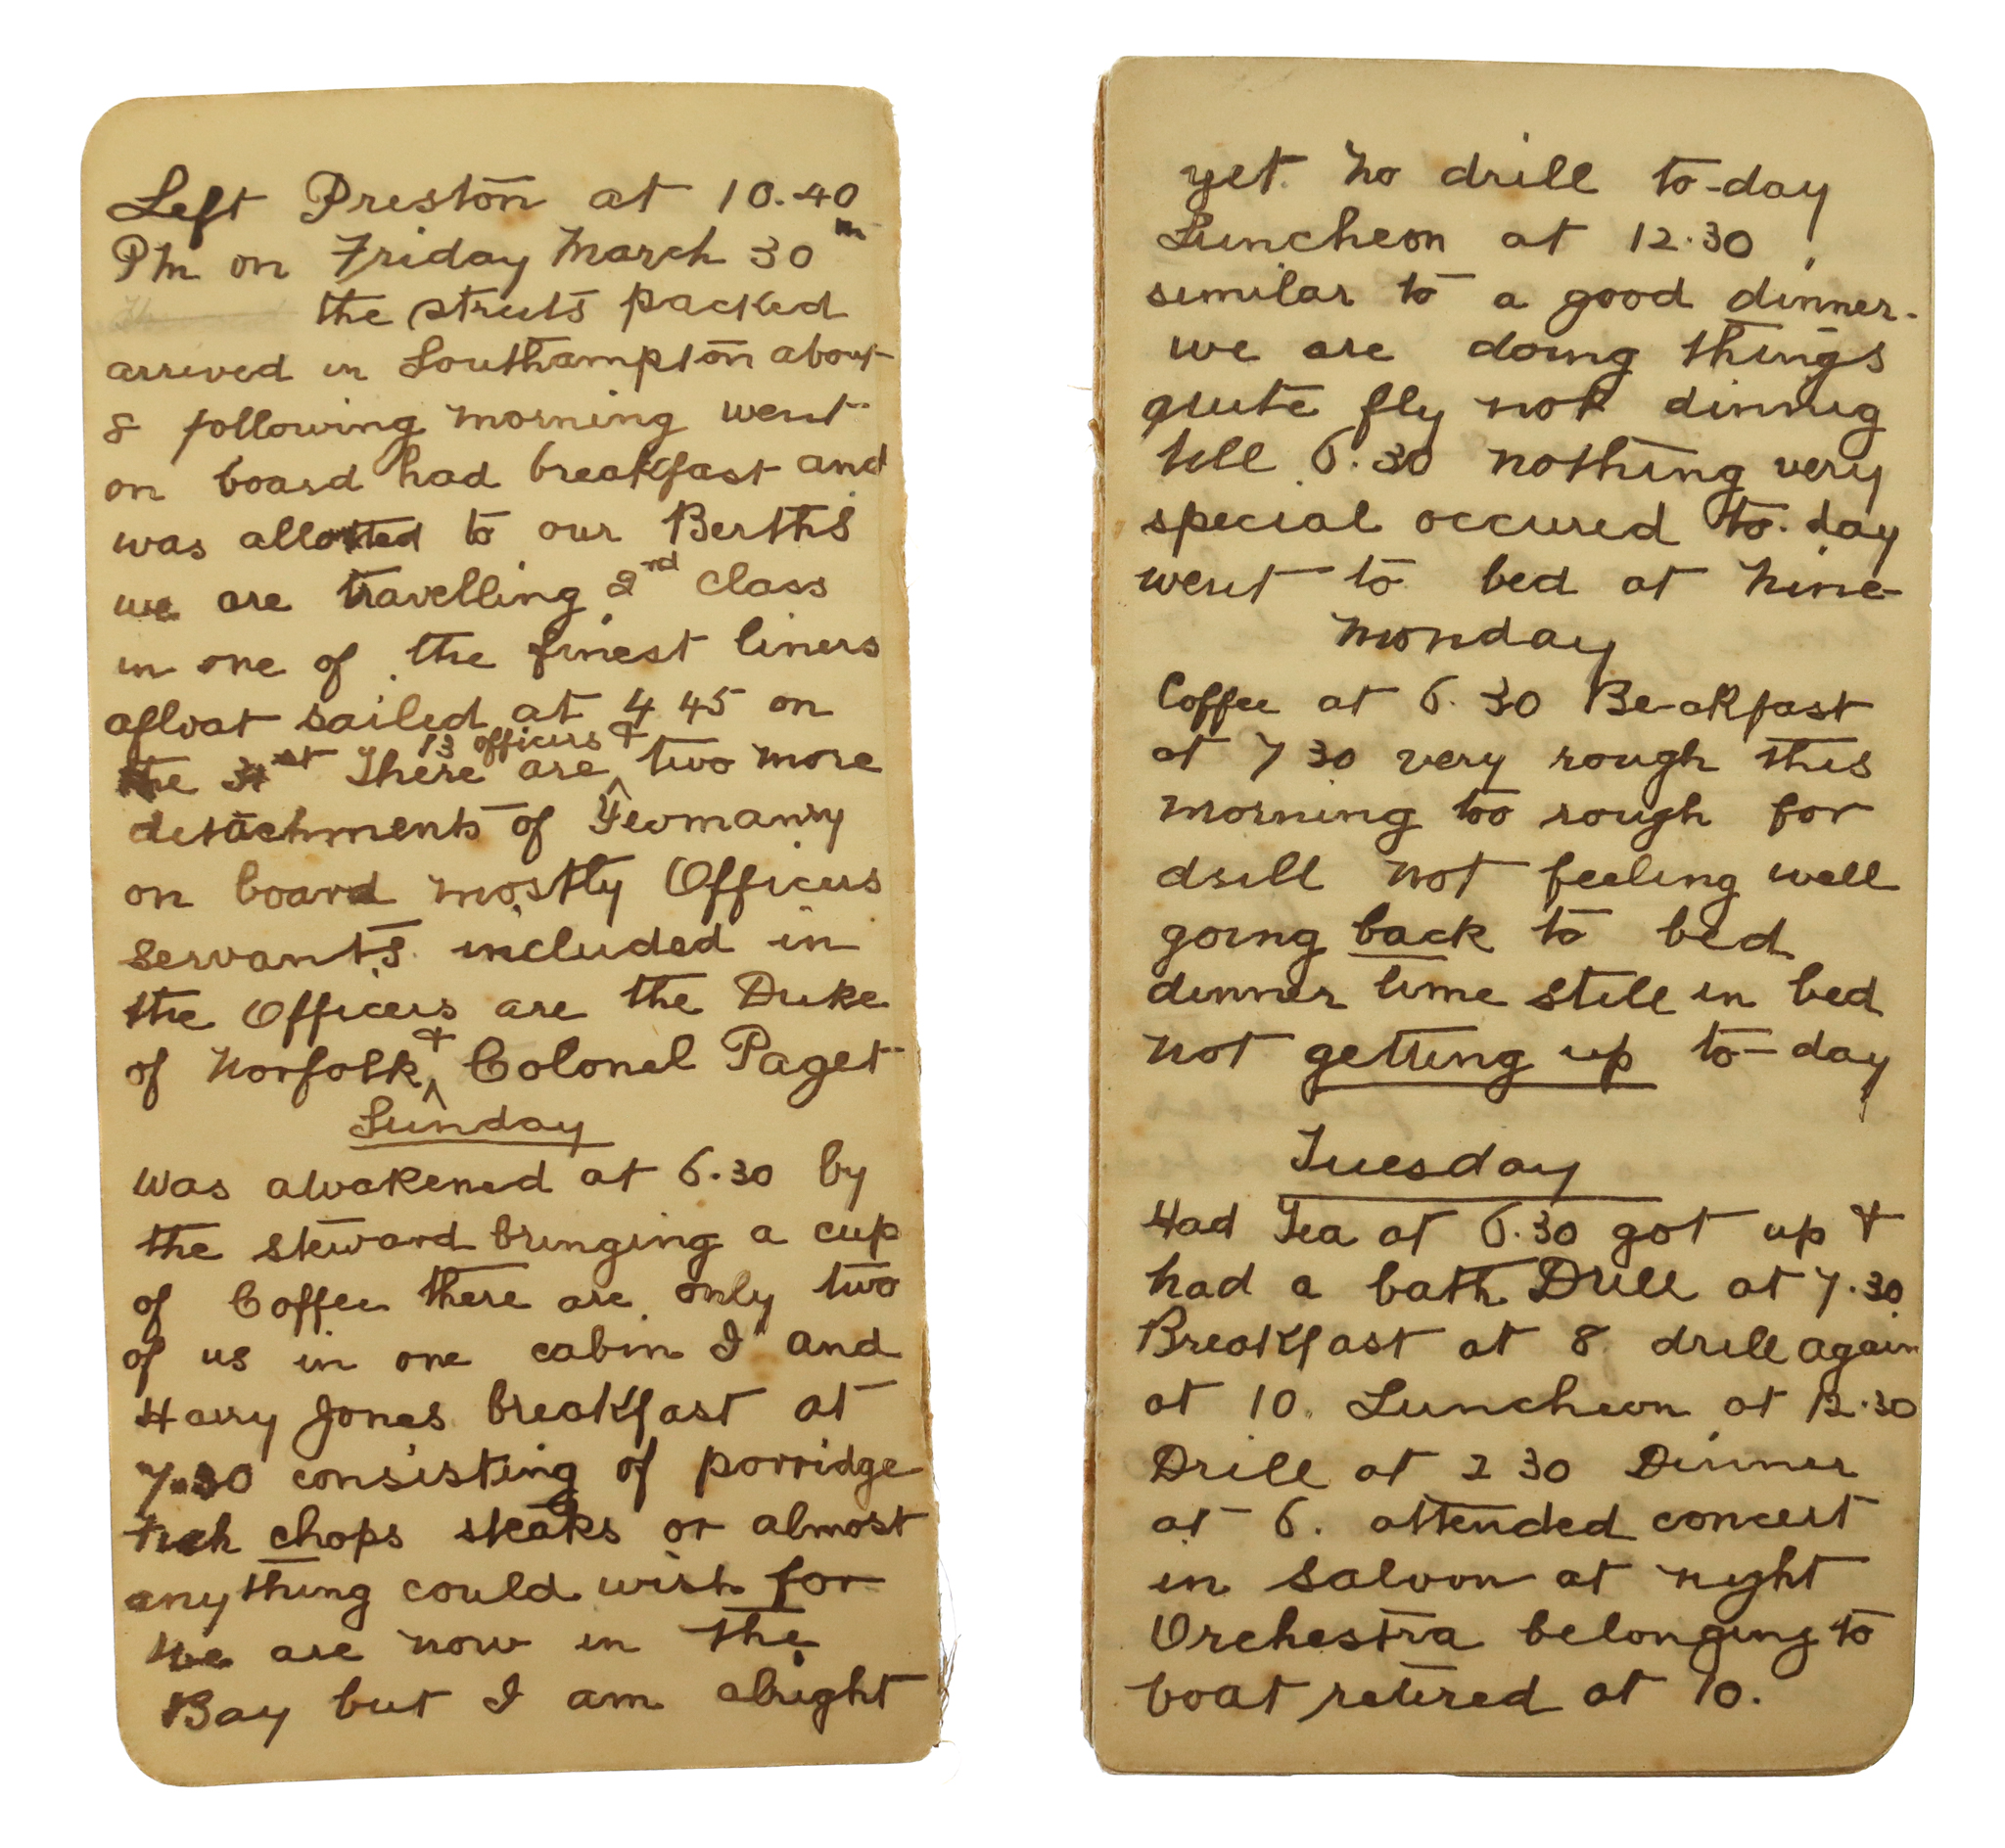 Left Preston at 10.40
Pm on Friday March 30 m
the streets packed
arrived in Southampton about
8 following morning went
on board had breakfast and
was allotted to our Berths
we are travelling 2nd class
in one of the finest liners
afloat sailed at 4 45 on
13 officers +
the 31st There are ^ two more
detachments of Yeomanry
on board mostly Officers
servants. included in
the Officers are the Duke
of Norfolk ^+ Colonel Paget
Sunday
was awakened at 6.30 by
the steward bringing a cup
of Coffee there are only two
of us in one cabin I and
Harry Jones breakfast at
7.30 consisting of porridge
chops steaks or almost
anything could wish for
We are now in the
Bay but I am alright
yet. No drill to-day
Luncheon at 12.30,
similar to a good dinner.
we are doing things
quite fly not dinnig
till 6.30 nothing very
special occured to-day
went to bed at Nine
Monday
Coffee at 6.30 Beakfast
at 7 30 very rough this
morning too rough for
drill not feeling well
going back to bed
dinner time still in bed
not getting up to-day
Tuesday
Had Tea at 6.30 got up +
had a bath Drill at 7.30
Breakfast at 8. drill again
at 10. Luncheon at 12.30
Drill at 2 30 Dinner
at 6. attended concert
in saloon at night
Orchestra belonging to
boat retired at 10.